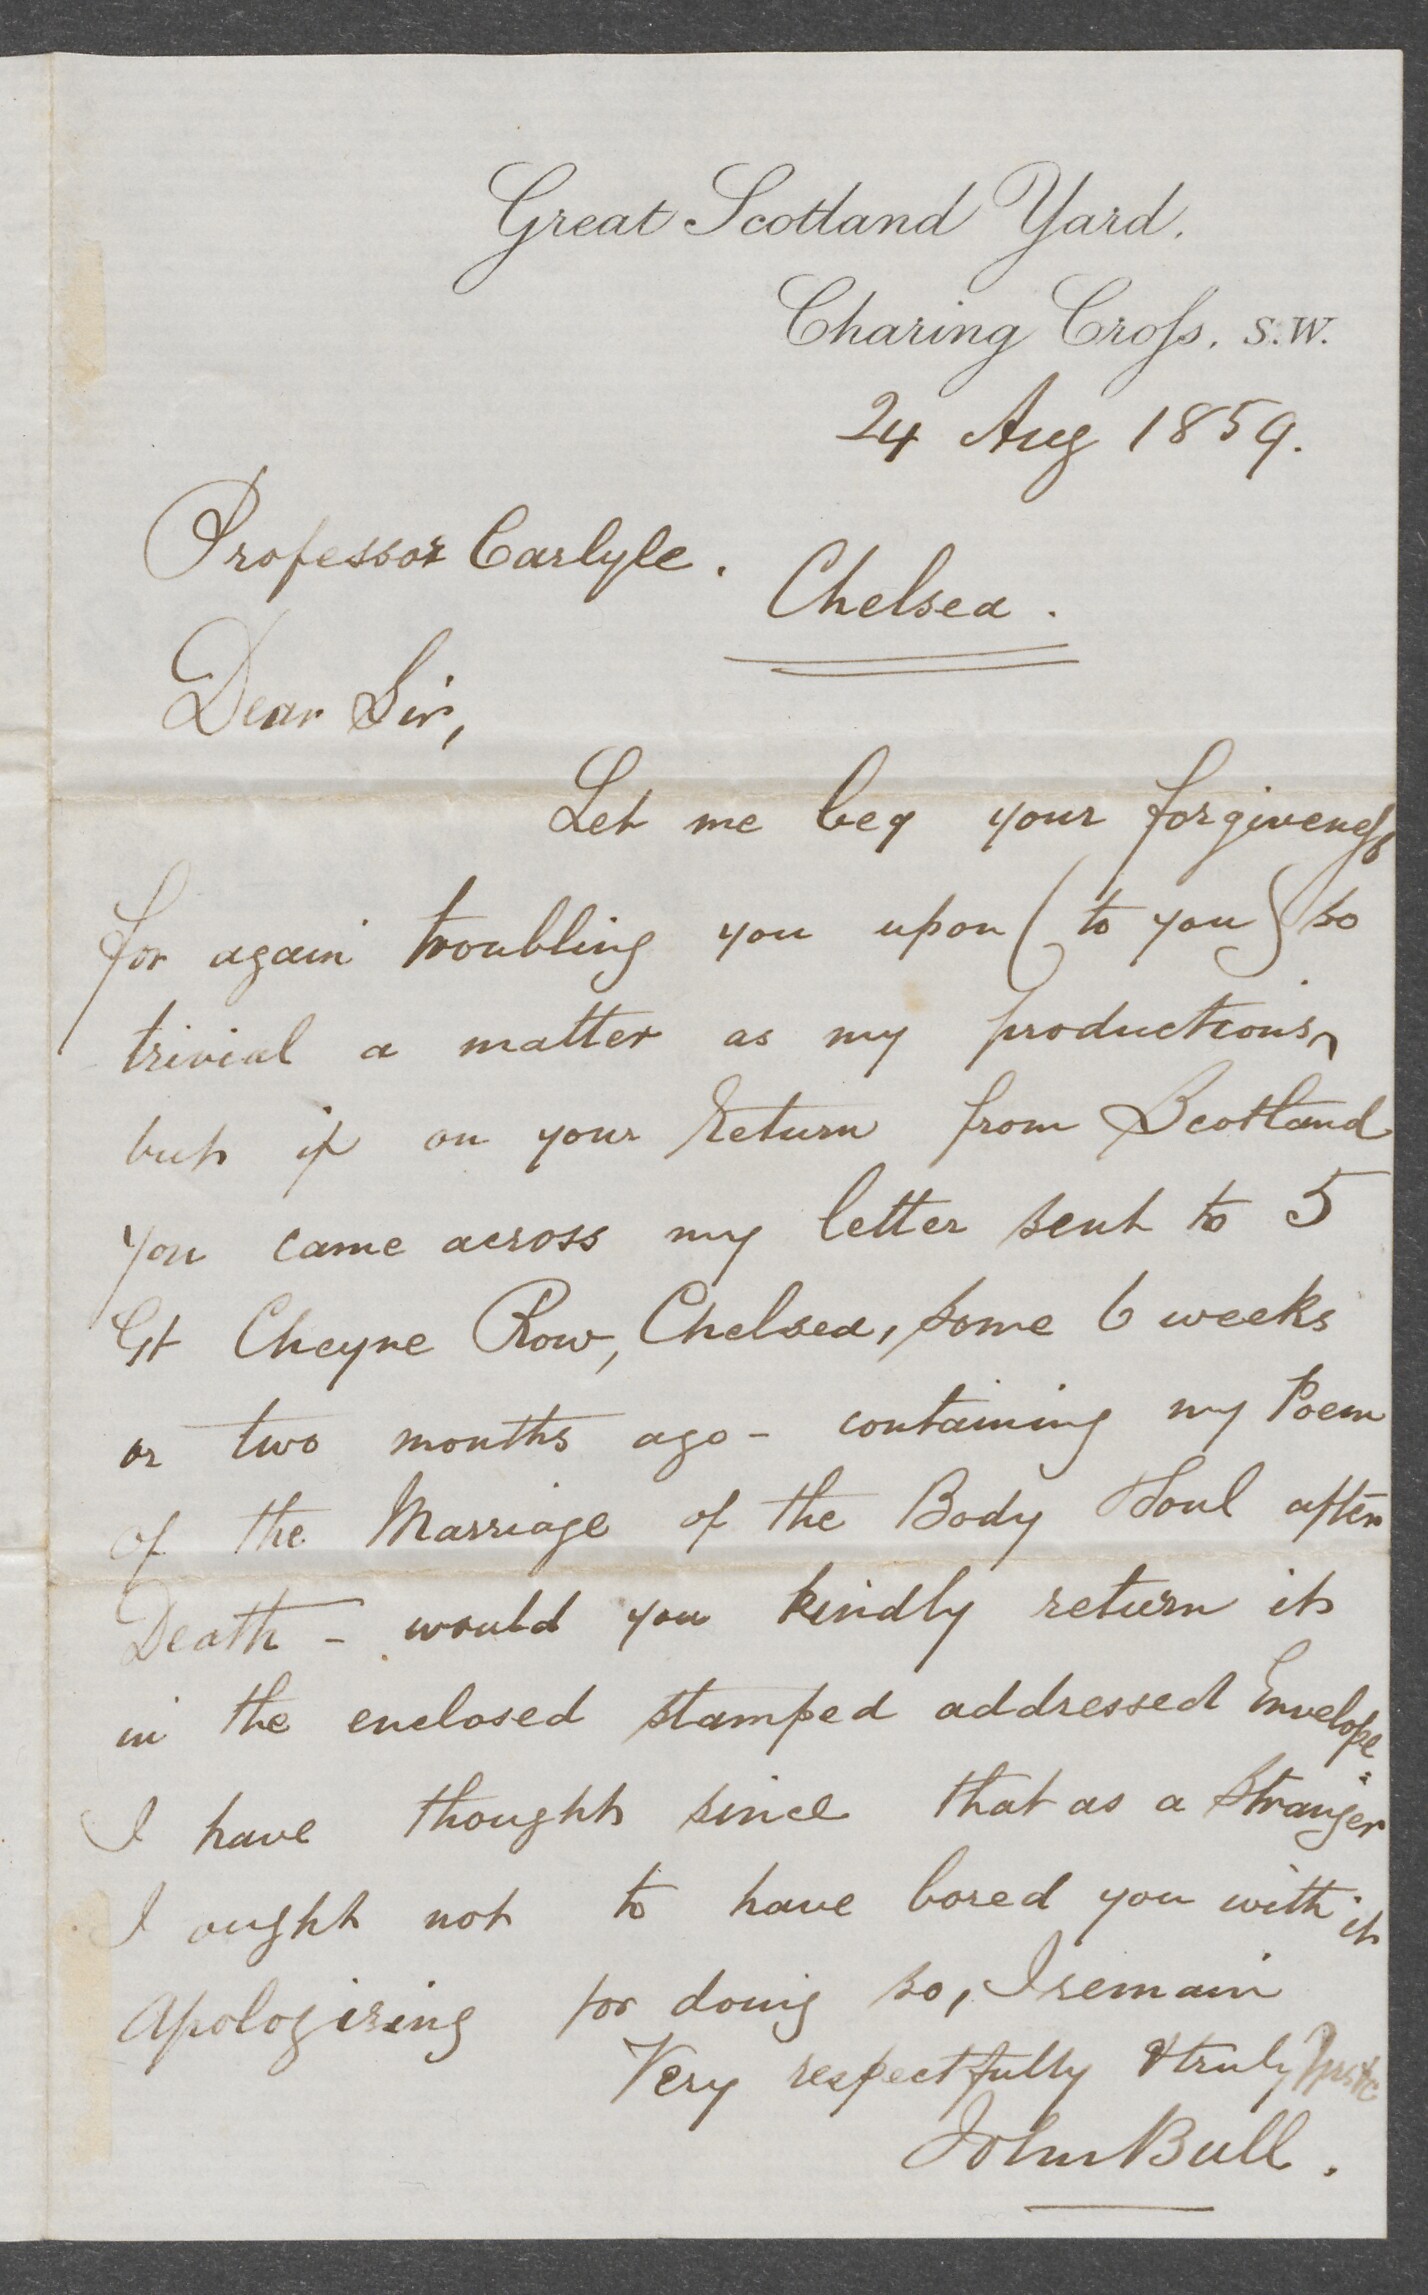 Great Scotland Yard.
Charing Croſs, S.W.
24 Aug 1859.
Professor Carlyle.
Chelsea.
Dear Sir,
Let me beg your forgiveneſs
for again troubling you upon (to you) so
trivial a matter as my productions,
but if on your return from Scotland
you came across my letter sent to 5
Gt Cheyne Row, Chelsea, some 6 weeks
or two months ago - containing my Poem
of the Marriage of the Body & Soul after
Death - would you kindly return it
in the enclosed stamped addressed Envelope.
I have thought since that as a Stranger
I ought not to have bored you with it
Apologising for doing so, I remain
Very respectfully & truly Yrs &c
John Bull.